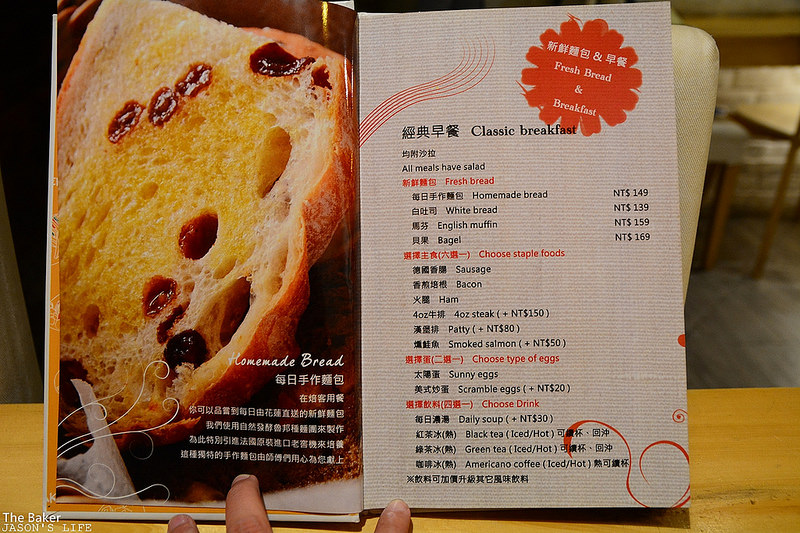 Homemade Bread
每日手作麵包
在焙客用餐
你可以品嘗到每日由花蓮直送的新鮮麵包
我們使用自然發酵魯邦種麵團來製作
為此特別引進法國原裝進口老窖機來培養
這種獨特的手作麵包由師傅們用心為您獻上
新鮮麵包 & 早餐
Fresh Bread
&
Breakfast
經典早餐 Classic breakfast
均附沙拉
All meals have salad
新鮮麵包 Fresh bread
每日手作麵包 Homemade bread NT$ 149
白吐司 White bread NT$ 139
馬芬 English muffin NT$ 159
貝果 Bagel NT$ 169
選擇主食(六選一) Choose staple foods
德國香腸 Sausage
香煎培根 Bacon
火腿 Ham
4oz牛排 4oz steak ( + NT$150 )
漢堡排 Patty ( + NT$80 )
燻鮭魚 Smoked salmon ( + NT$50 )
選擇蛋(二選一) Choose type of eggs
太陽蛋 Sunny eggs
美式炒蛋 Scramble eggs ( + NT$20 )
選擇飲料(四選一) Choose Drink
每日濃湯 Daily soup ( + NT$30 )
紅茶冰(熱) Black tea ( Iced/Hot ) 可續杯、回沖
綠茶冰(熱) Green tea ( Iced/Hot ) 可續杯、回沖
咖啡冰(熱) Americano coffee ( Iced/Hot ) 熱可續杯
※飲料可加價升級其它風味飲料
The Baker
JASON'S LIFE